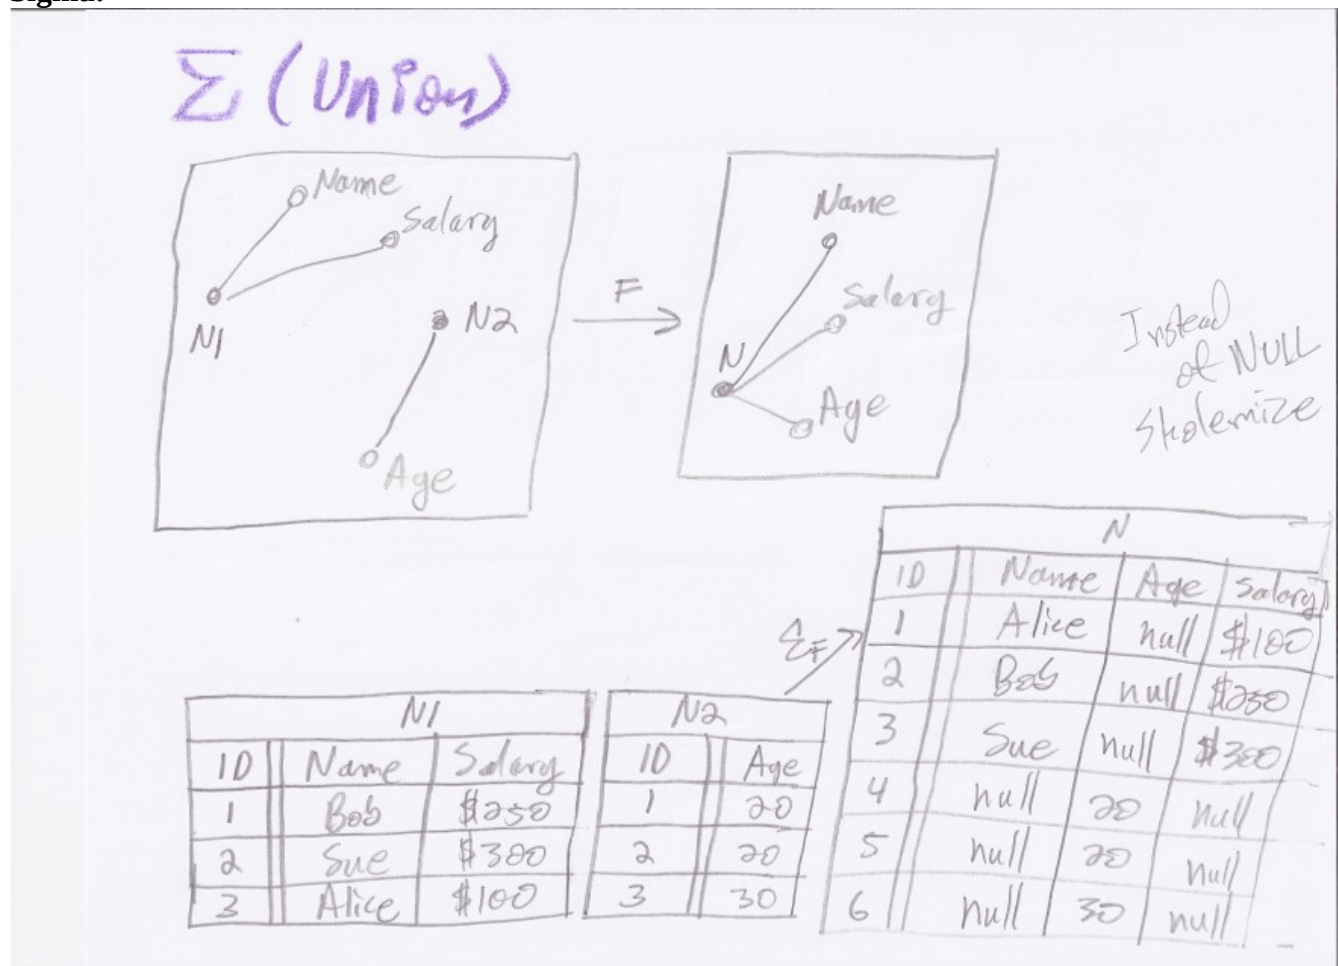 Σ (Union)
Name
Salary
N1
N2
Age
F
Name
Salary
N
Age
Instead
of NULL
Skolemize
N1
ID Name Salary
1 Bob $250
2 Sue $300
3 Alice $100
N2
ID Age
1 20
2 20
3 30
Σ_F
N
ID Name Age Salary
1 Alice null $100
2 Bob null $250
3 Sue null $300
4 null 20 null
5 null 20 null
6 null 30 null